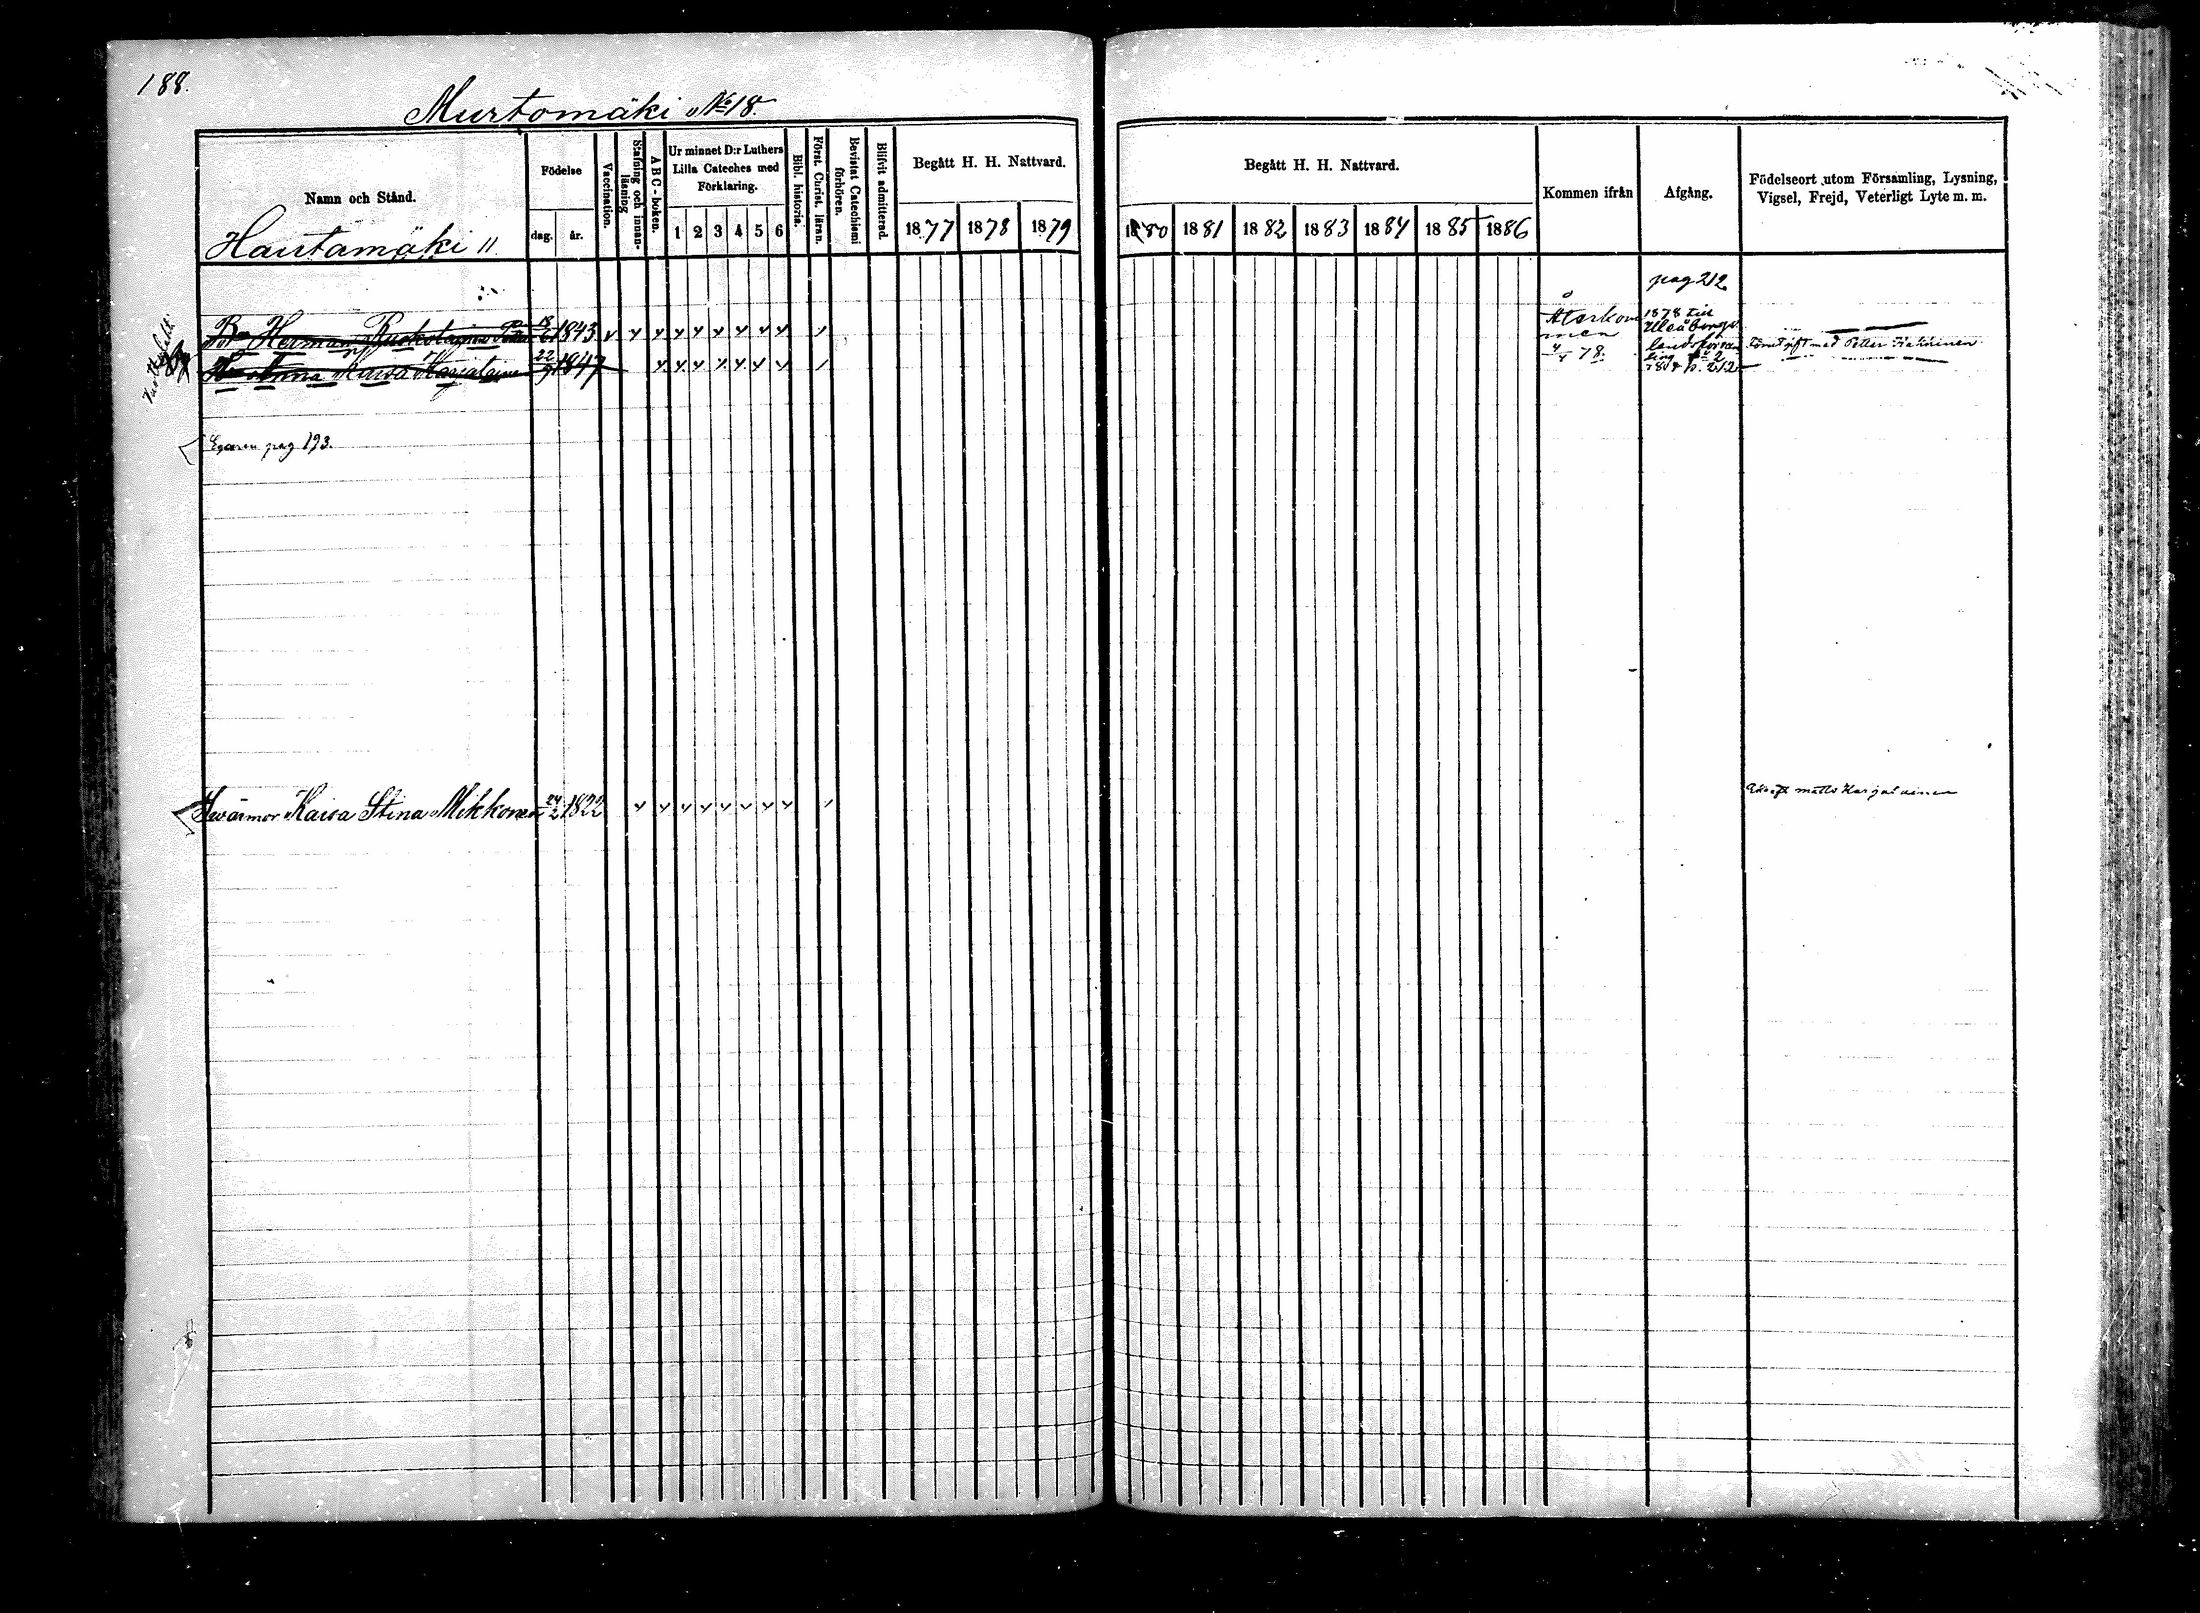 188.
Murtomäki No 18.
Namn och Stånd.
Födelse
dag.
år.
Vaccination.
Stafning och innan-
läsning
A B C-boken.
Ur minnet D:r Luthers
Lilla Cateches med
Förklaring.
1 2 3 4 5 6
Bibl. historia.
Först. Christ. läran.
Bevistat Catechismi
förhören.
Blifvit admitterad.
Begått H. H. Nattvard.
1877 1878 1879
Begått H. H. Nattvard.
1880 1881 1882 1883 1884 1885 1886
Kommen ifrån
Afgång.
Födelseort utom Församling, Lysning,
Vigsel, Frejd, Veterligt Lyte m. m.
Hautamäki 11.
pag 212
Herman 18/6 1843
Återkom
men
4/4 78.
1878 till
Uleåborgs
landsförsam
ling № 2
p. 212
Anna Kaisa Karjalainen 22/9 1847
gift med Petter
Egaren pag 193.
Swärmor Kaisa Stina Mikkonen 24/2 1822
Matts Karjalainen